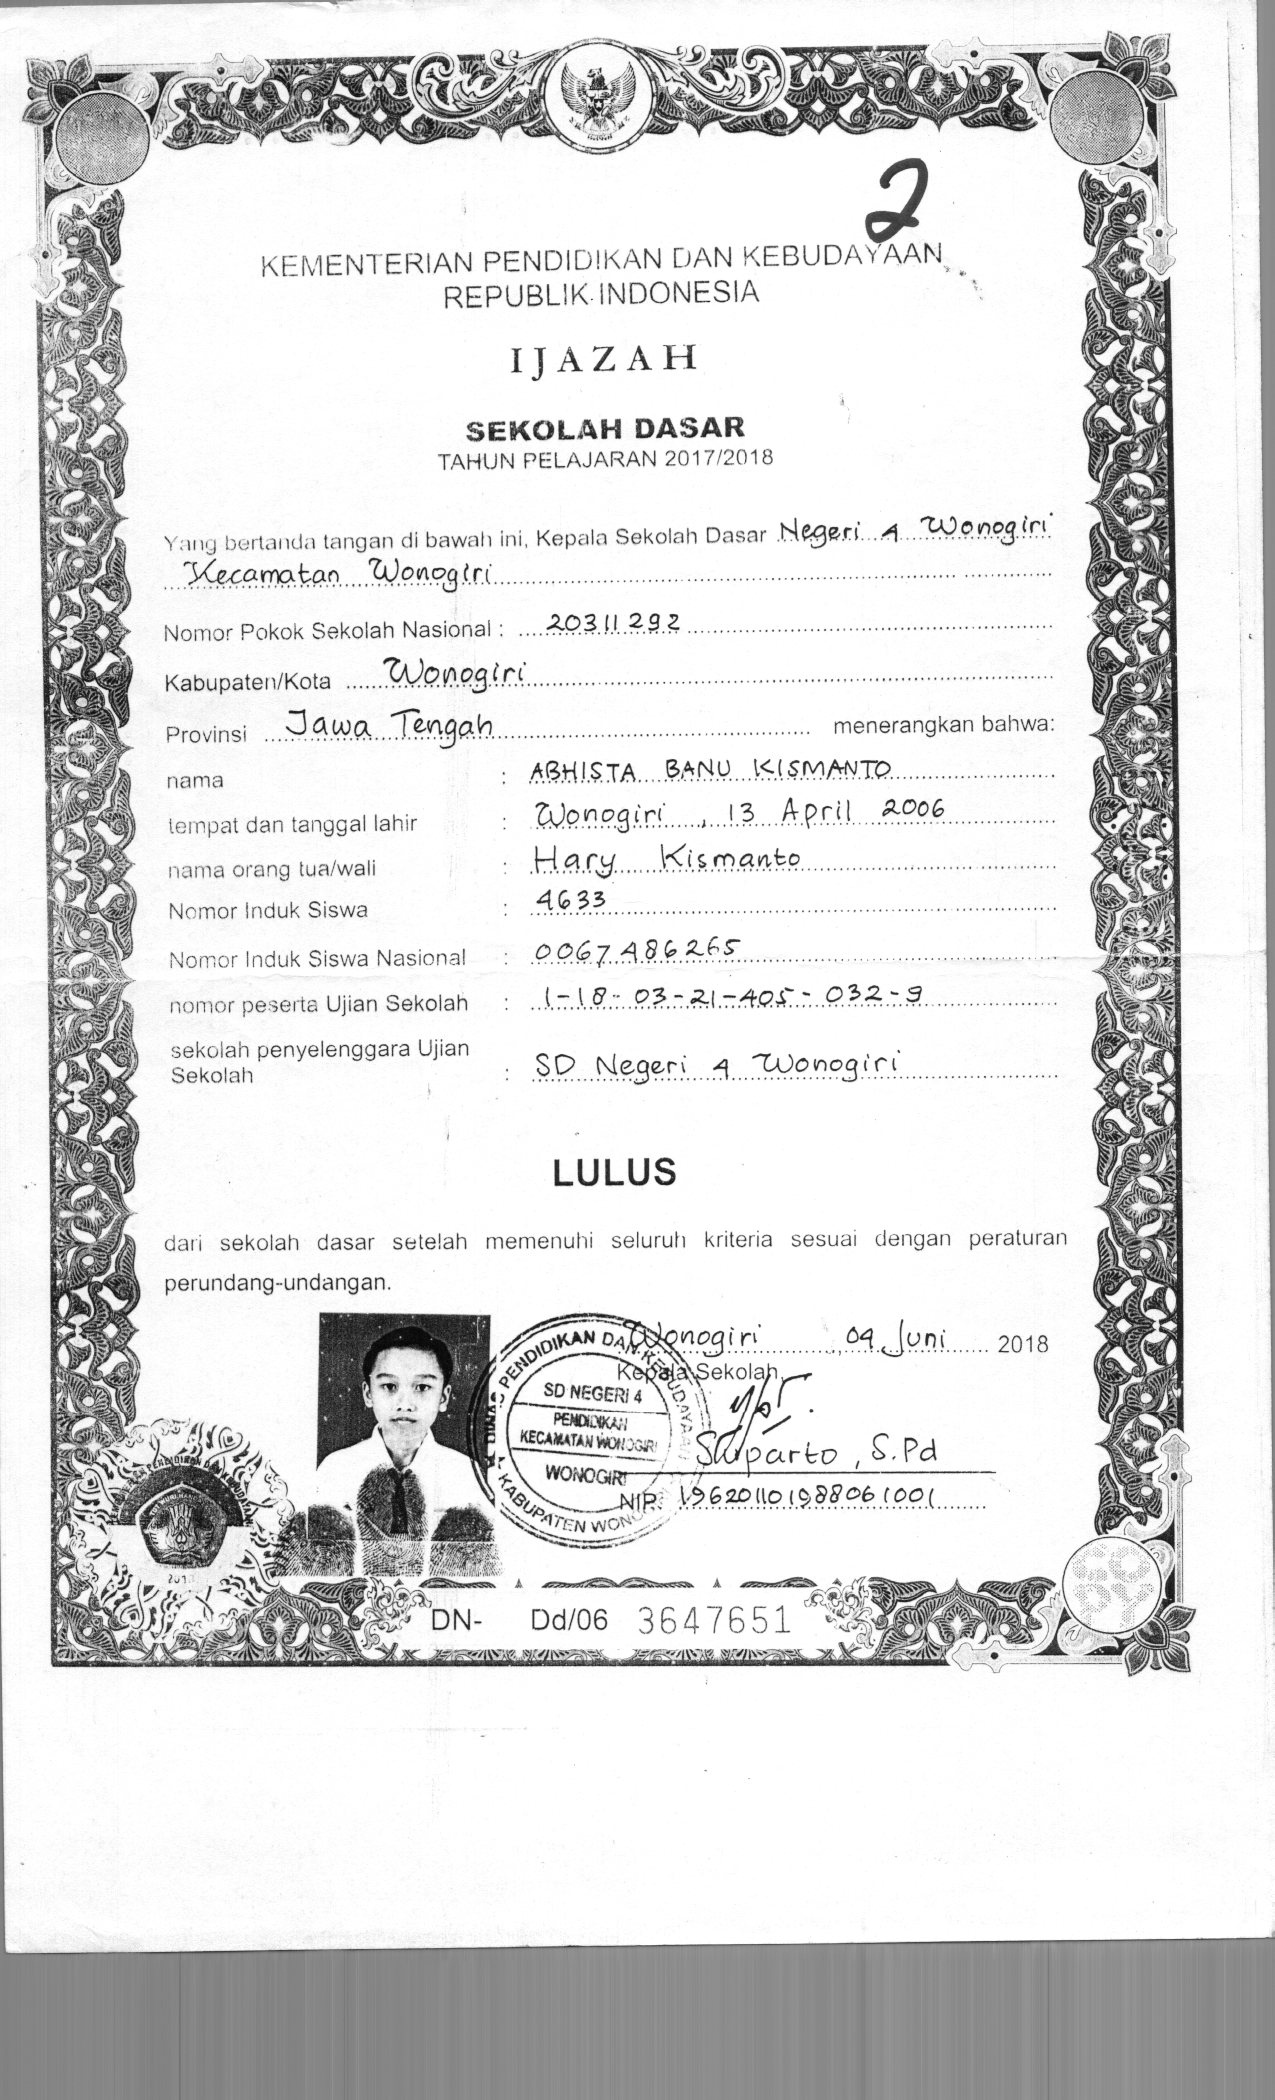 2
KEMENTERIAN PENDIDIKAN DAN KEBUDAYAAN
REPUBLIK INDONESIA
IJAZAH
SEKOLAH DASAR
TAHUN PELAJARAN 2017/2018
Yang bertanda tangan di bawah ini, Kepala Sekolah Dasar Negeri 4 Wonogiri
Kecamatan Wonogiri
Nomor Pokok Sekolah Nasional : 20311292
Kabupaten/Kota Wonogiri
Provinsi Jawa Tengah menerangkan bahwa:
nama : ABHISTA BANU KISMANTO
tempat dan tanggal lahir : Wonogiri, 13 April 2006
nama orang tua/wali : Hary Kismanto
Nomor Induk Siswa : 4633
Nomor Induk Siswa Nasional : 0067486265
nomor peserta Ujian Sekolah : 1-18-03-21-405-032-9
sekolah penyelenggara Ujian
Sekolah : SD Negeri 4 Wonogiri
LULUS
dari sekolah dasar setelah memenuhi seluruh kriteria sesuai dengan peraturan
perundang-undangan.
Wonogiri, 04 Juni 2018
Kepala Sekolah,
DINAS PENDIDIKAN DAN KEBUDAYAAN
SD NEGERI 4
PENDIDIKAN
KECAMATAN WONOGIRI
WONOGIRI
KABUPATEN WONOGIRI
Suparto, S.Pd
NIP. 196201101988061001
DN- Dd/06 3647651